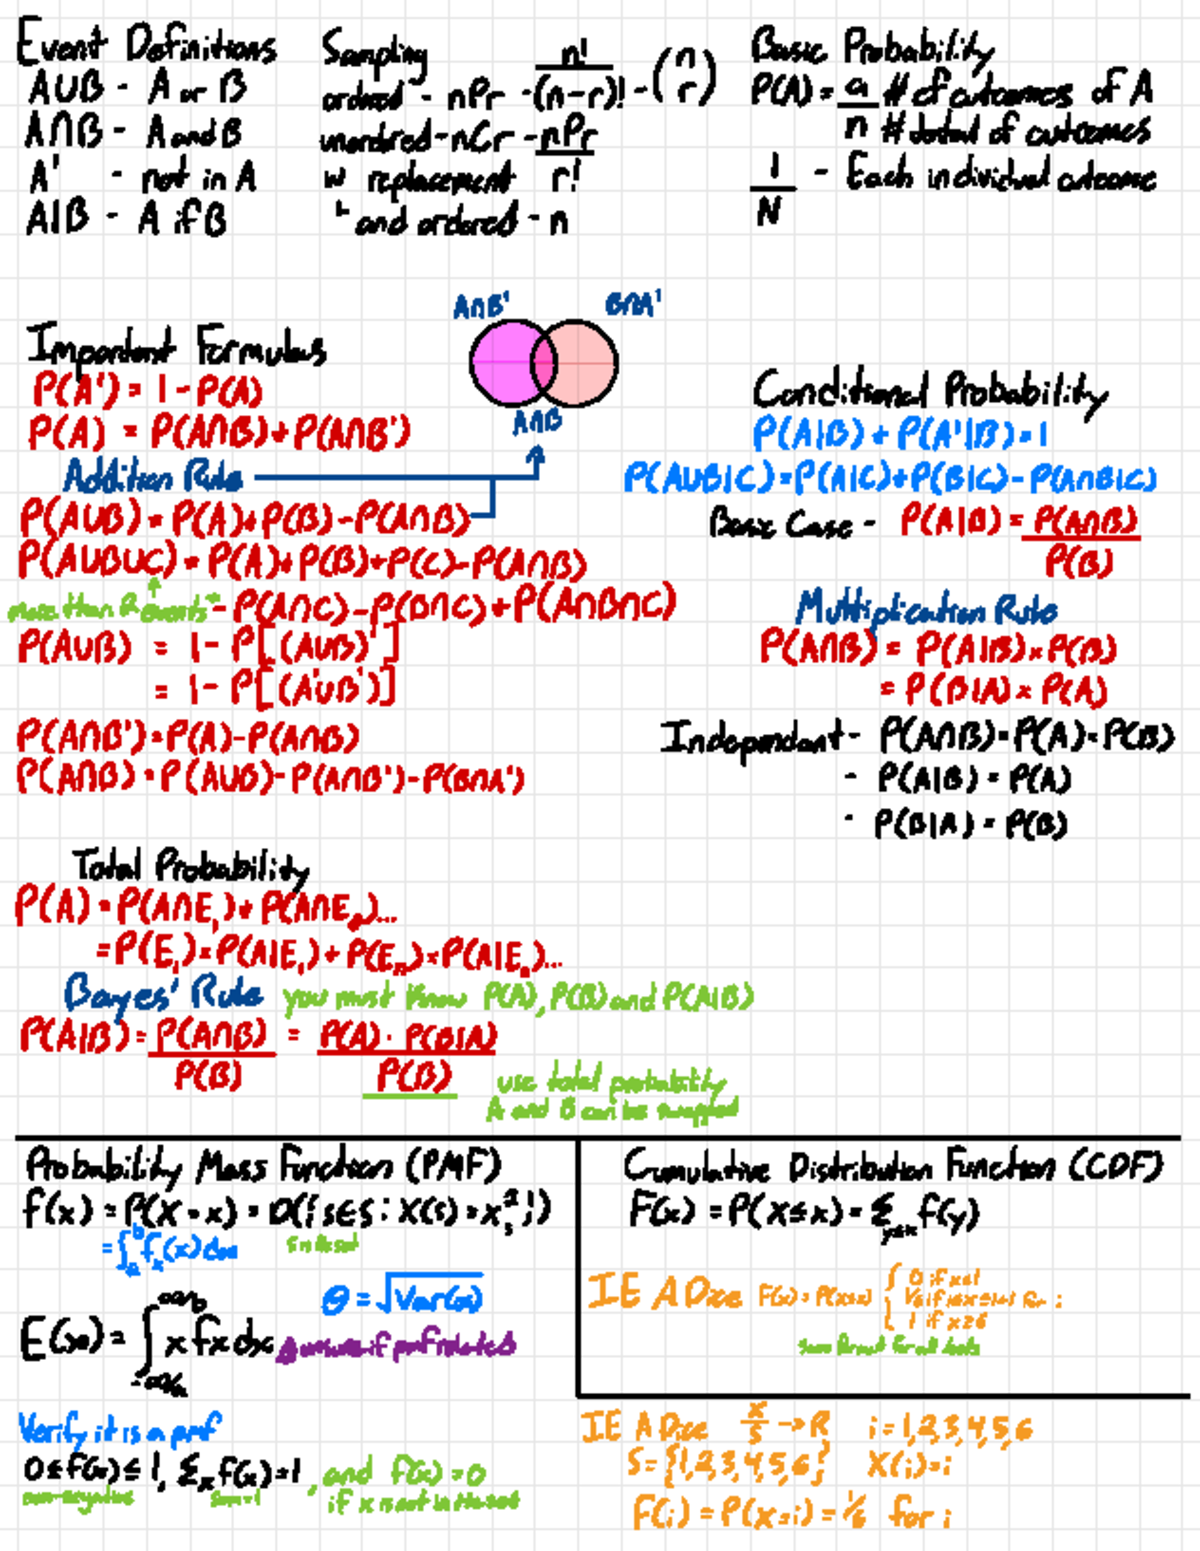 Event Definitions
A∪B - A or B
A∩B - A and B
A' - not in A
A|B - A if B
Sampling
ordered - nPr - n!/(n-r)! - (n r)
unordred - nCr - nPr/r!
w replacement
↳ and ordered - n
Basic Probability
P(A) = a/n # of outcomes of A
# total of outcomes
1/N - Each individual outcome
A∩B' B∩A'
A∩B
Important Formulas
P(A') = 1 - P(A)
P(A) = P(A∩B) + P(A∩B')
Addition Rule
P(A∪B) = P(A) + P(B) - P(A∩B)
P(A∪B∪C) = P(A) + P(B) + P(C) - P(A∩B)
more than 2 events - P(A∩C) - P(B∩C) + P(A∩B∩C)
P(A∪B) = 1 - P[(A∪B)']
= 1 - P[(A'∪B')]
P(A∩B') = P(A) - P(A∩B)
P(A∩B) = P(A∪B) - P(A∩B') - P(B∩A')
Conditional Probability
P(A|B) + P(A'|B) = 1
P(A∪B|C) = P(A|C) + P(B|C) - P(A∩B|C)
Basic Case - P(A|B) = P(A∩B)/P(B)
Multiplication Rule
P(A∩B) = P(A|B) × P(B)
= P(B|A) × P(A)
Independant - P(A∩B) = P(A) × P(B)
- P(A|B) = P(A)
- P(B|A) = P(B)
Total Probability
P(A) = P(A∩E₁) + P(A∩Eₙ)...
= P(E₁) × P(A|E₁) + P(Eₙ) × P(A|Eₙ)...
Bayes' Rule you must know P(A), P(B) and P(A|B)
P(A|B) = P(A∩B)/P(B) = P(A) · P(B|A)/P(B)
use total probability
A and B can be swapped
Probability Mass Function (PMF)
f(x) = P(X = x) = P({s∈S : X(s) = x})
= ∫ₐᵇ fₓ(x) dx
θ = √Var(x)
E(x) = ∫ x fx dx unsure if pmf related
Verify it is a pmf
0 ≤ f(x) ≤ 1, Σₓ f(x) = 1, and f(x) = 0
non-negative sum = 1 if x is not in the set
Cumulative Distribution Function (CDF)
F(x) = P(X ≤ x) = Σ y≤x f(y)
IE A Dice F(x) = P(X≤x) { 0 if x<1
1 if x≥6
IE A Dice X/S → R i = 1,2,3,4,5,6
S = {1,2,3,4,5,6} X(i) = i
F(i) = P(x=i) = 1/6 for i